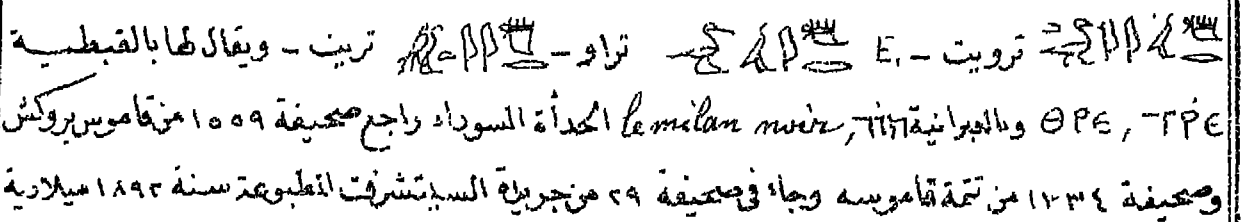 ترويت - E, تراو - تريت - ويقال لها بالقبطية
ⲑⲣⲉ, ⲧⲣⲉ وبالعبرانية le milan noir, الحدأة السوداء راجع صحيفة ١٥٥٩ من قاموس بروكش
وصحيفة ١٣٣٤ من تتمة قاموسه وجاء فى صحيفة ٢٩ من جريدة السيتشرفت المطبوعة سنة ١٨٩٢ ميلادية